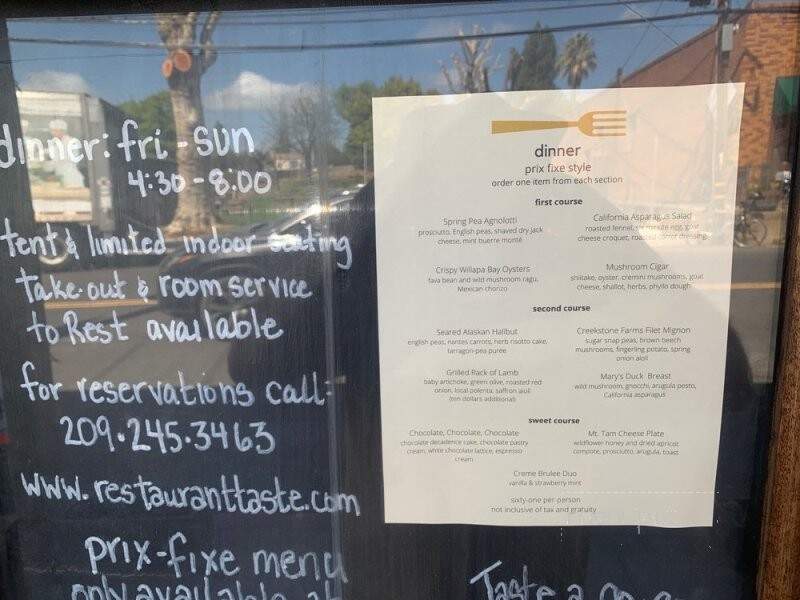 dinner: fri - sun
4:30 - 8:00
tent & limited indoor seating
take-out & room service
to Rest available
for reservations call:
209.245.3463
www.restauranttaste.com
prix-fixe menu
only available at
Taste a
dinner
prix fixe style
order one item from each section
first course
Spring Pea Agnolotti
prosciutto, English peas, shaved dry jack
cheese, mint buerre monté
California Asparagus Salad
roasted fennel, six minute egg, goat
cheese croquet, roasted carrot dressing
Crispy Willapa Bay Oysters
fava bean and wild mushroom ragu,
Mexican chorizo
Mushroom Cigar
shiitake, oyster, cremini mushrooms, goat
cheese, shallot, herbs, phyllo dough
second course
Seared Alaskan Halibut
english peas, nantes carrots, herb risotto cake,
tarragon-pea puree
Creekstone Farms Filet Mignon
sugar snap peas, brown beech
mushrooms, fingerling potato, spring
onion aioli
Grilled Rack of Lamb
baby artichoke, green olive, roasted red
onion, local polenta, saffron aioli
(ten dollars additional)
Mary's Duck Breast
wild mushroom, gnocchi, arugula pesto,
California asparagus
sweet course
Chocolate, Chocolate, Chocolate
chocolate decadence cake, chocolate pastry
cream, white chocolate lattice, espresso
cream
Mt. Tam Cheese Plate
wildflower honey and dried apricot
compote, prosciutto, arugula, toast
Creme Brulee Duo
vanilla & strawberry mint
sixty-one per person
not inclusive of tax and gratuity